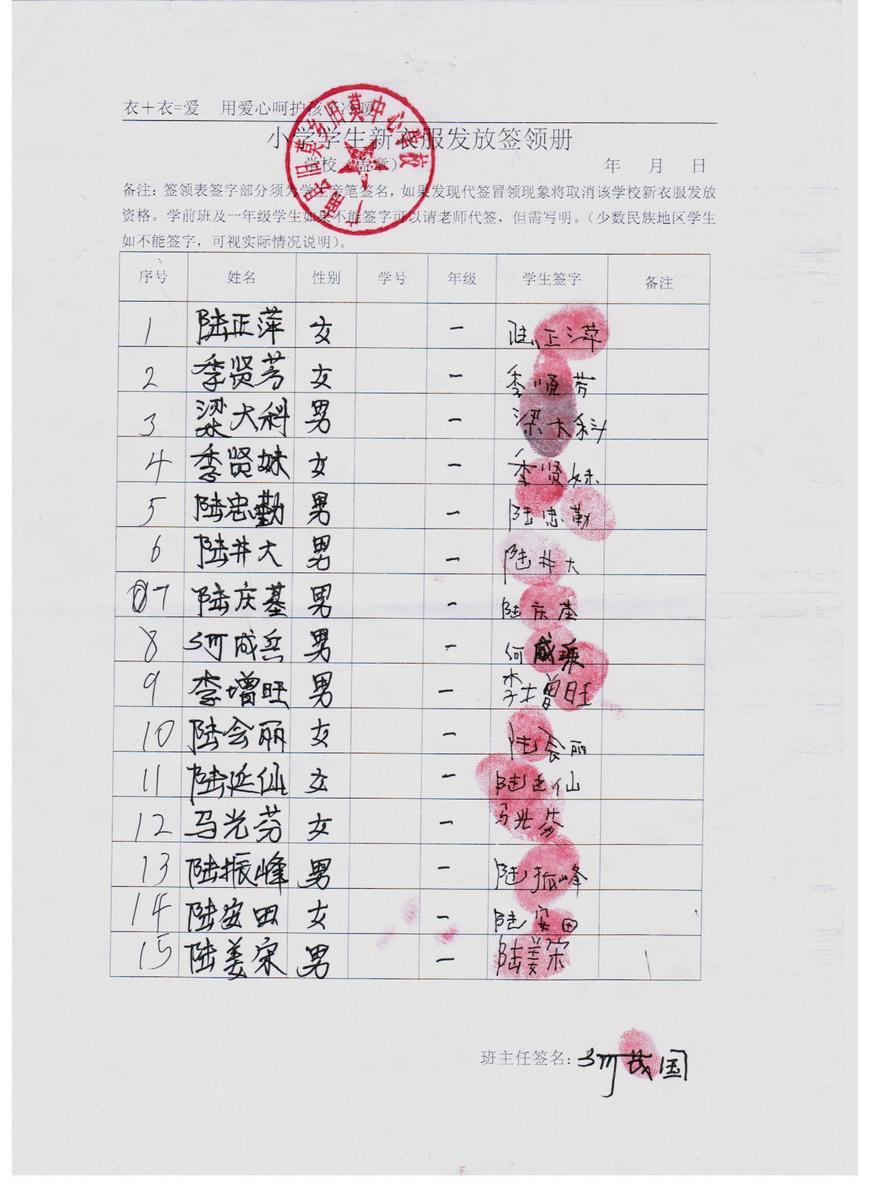 衣+衣=爱 用爱心呵护孩子冷暖
小学学生新衣服发放签领册
学校(盖章) 年 月 日
广南县旧莫乡旧莫中心学校
备注:签领表签字部分须为学生亲笔签名,如果发现代签冒领现象将取消该学校新衣服发放
资格。学前班及一年级学生如果不能签字可以请老师代签,但需写明。(少数民族地区学生
如不能签字,可视实际情况说明)。
序号 姓名 性别 学号 年级 学生签字 备注
1 陆正萍 女 一 陆正萍
2 季贤芳 女 一 季贤芳
3 梁大科 男 一 梁大科
4 季贤妹 女 一 季贤妹
5 陆忠勤 男 一 陆忠勤
6 陆井大 男 一 陆井大
7 陆庆基 男 一 陆庆基
8 何成兵 男 一 何咸
9 李增旺 男 一 李增旺
10 陆会丽 女 一 陆会丽
11 陆延仙 女 一 陆延仙
12 马光芬 女 一 马光芬
13 陆振峰 男 一 陆振峰
14 陆安田 女 一 陆安田
15 陆姜宋 男 一 陆姜宋
班主任签名:何茂国